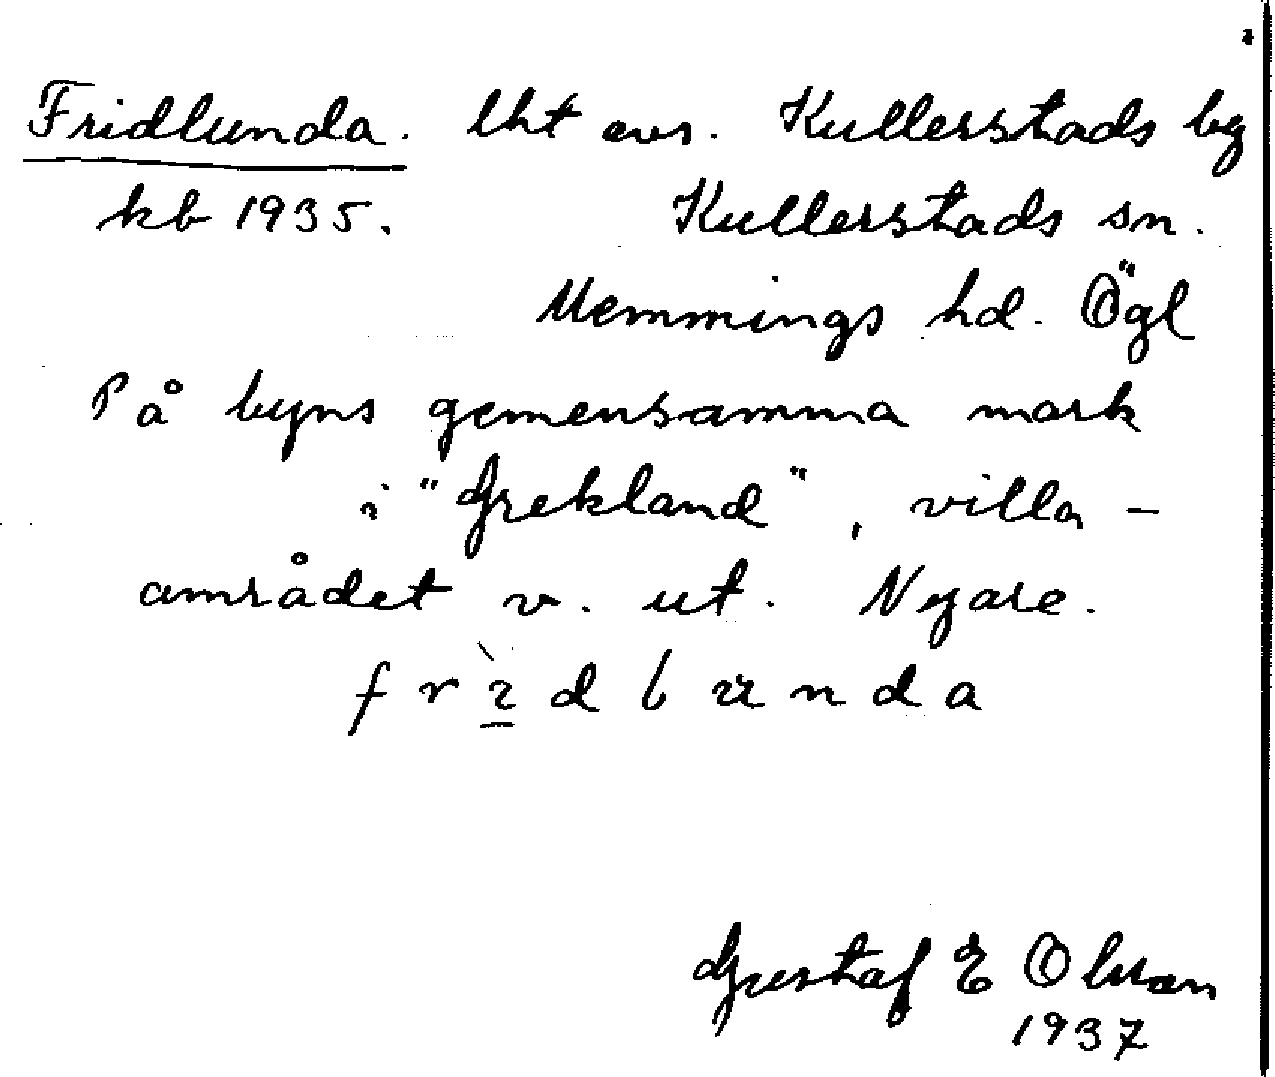 Fridlunda. lht avs. Kullerstads by
kb 1935. Kullerstads sn.
Memmings hd. Ögl
På byns gemensamma mark
i "Grekland", villa-
området v. ut. Nyare.
Gustaf E Olsson
1937